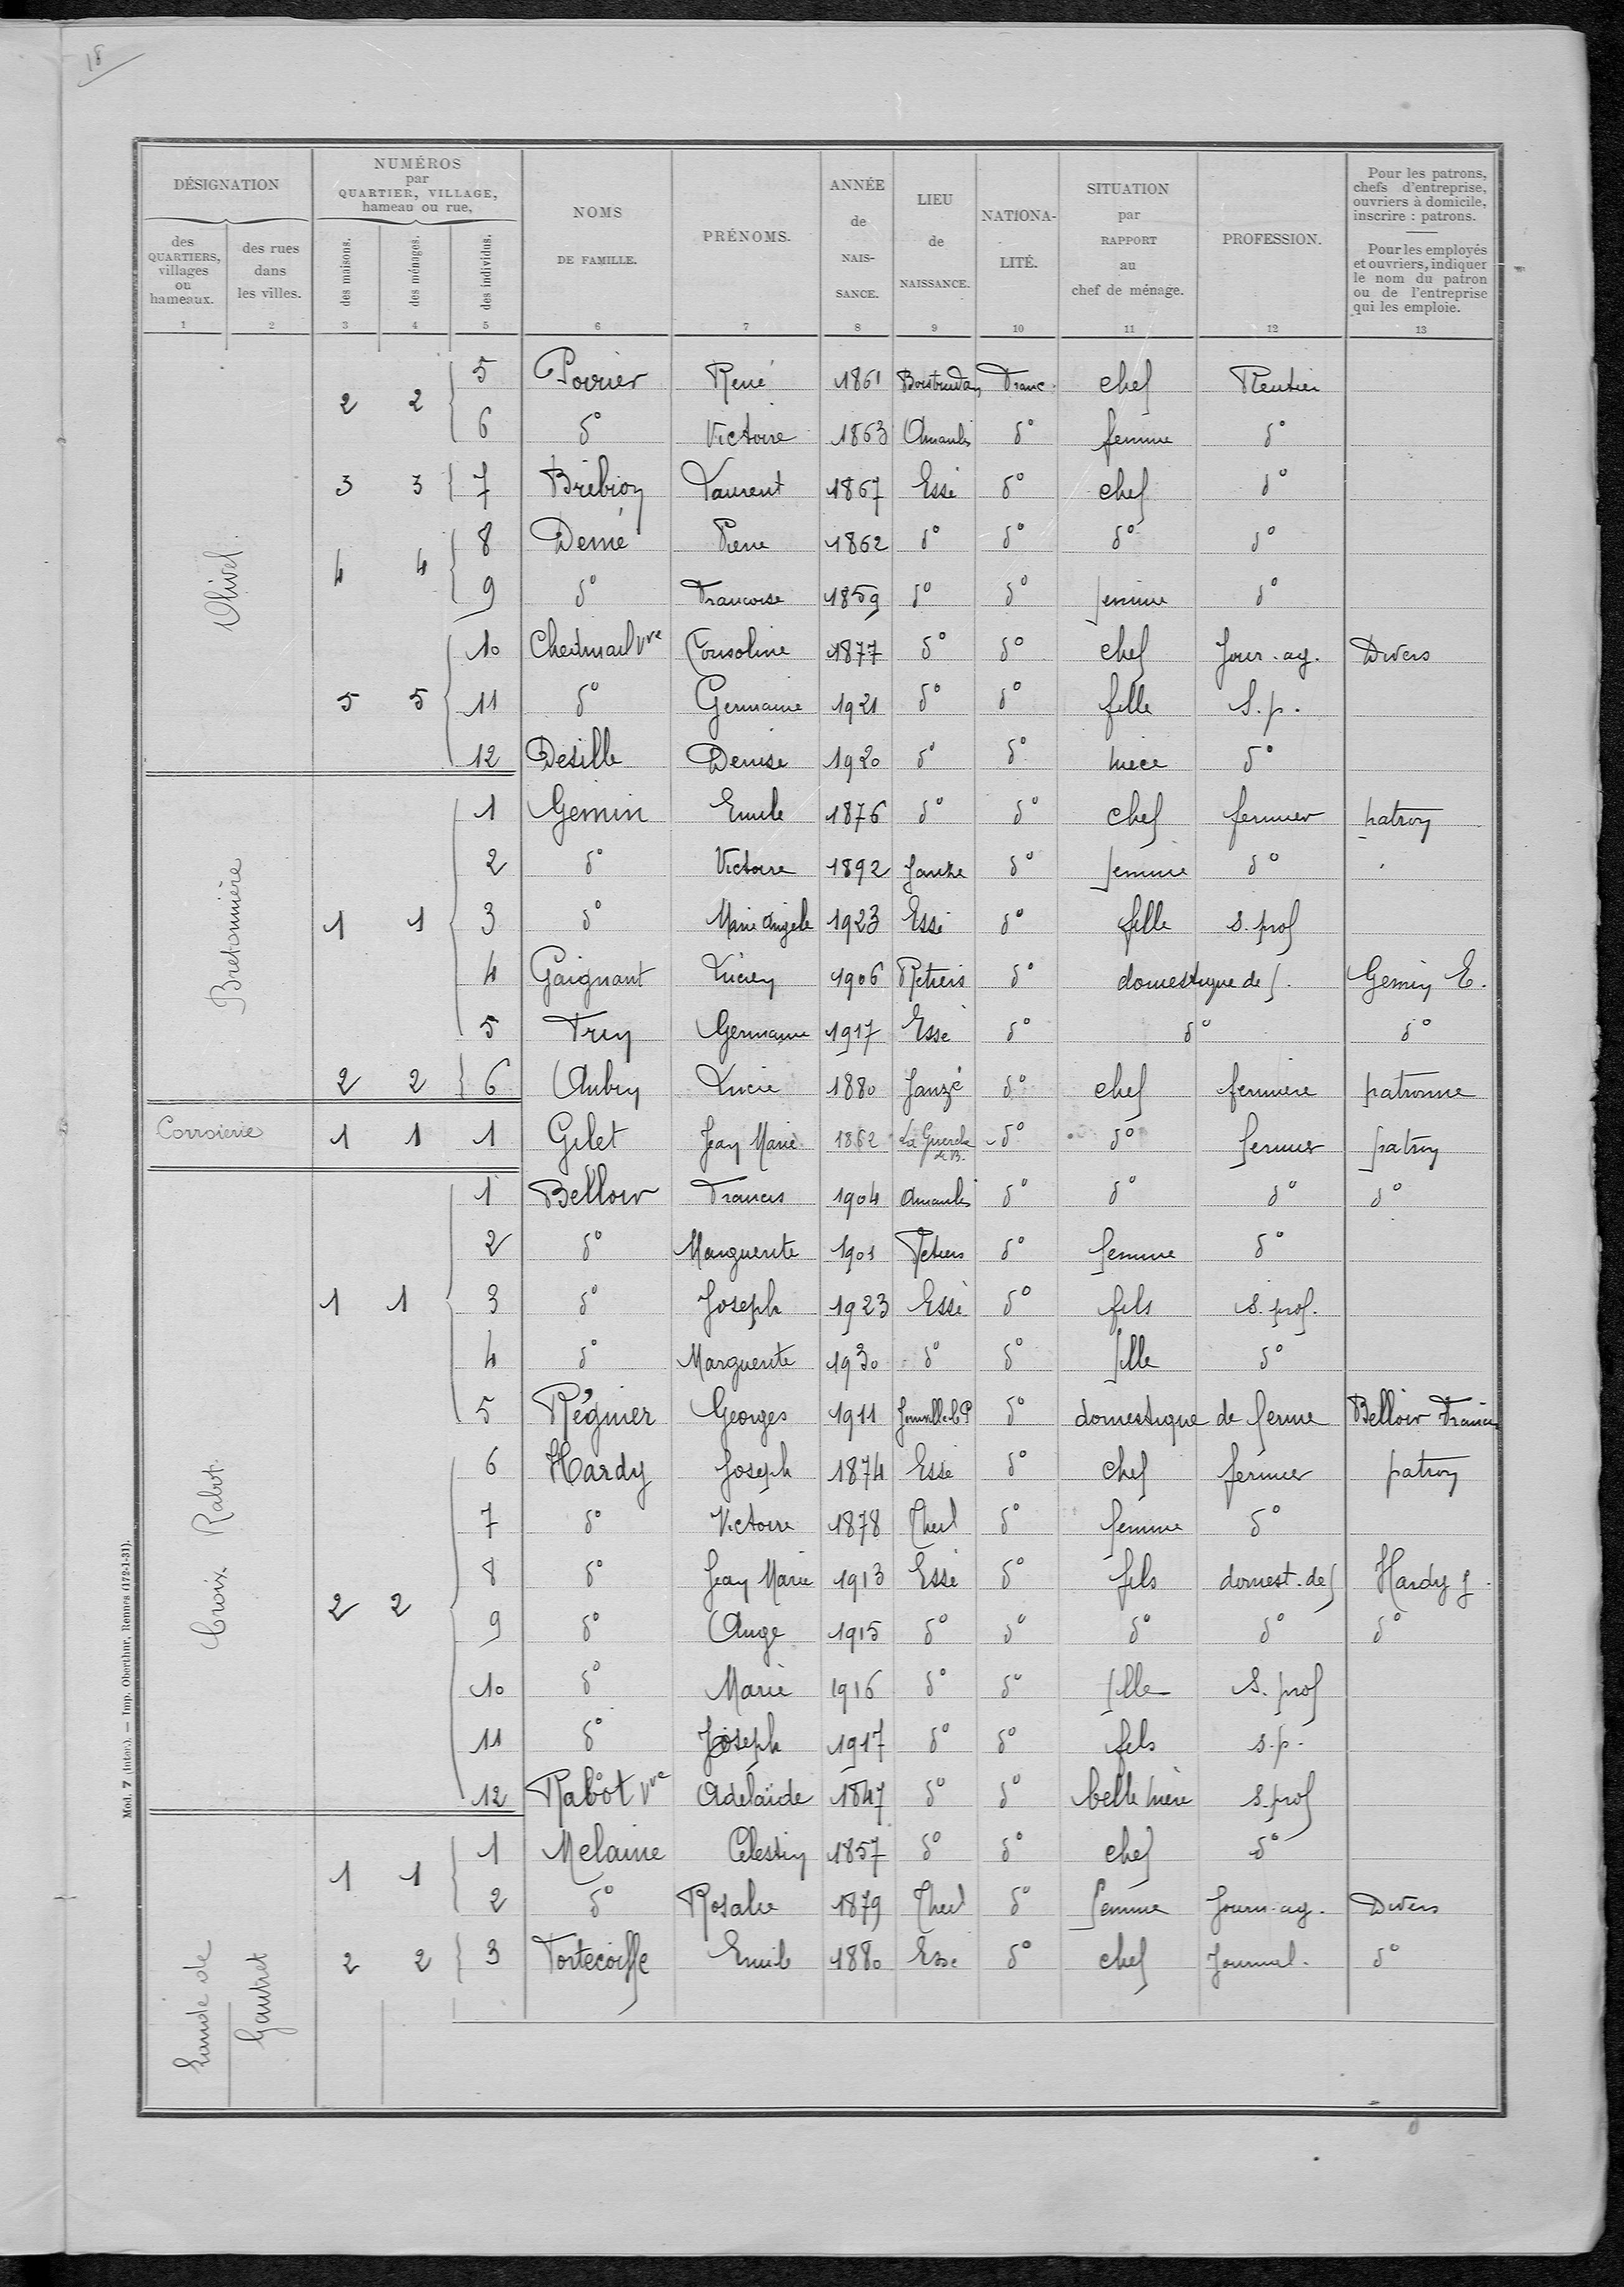 18
DÉSIGNATION
NUMÉROS
par
QUARTIER, VILLAGE,
hameau ou rue,
NOMS
DE FAMILLE.
PRÉNOMS.
ANNÉE
de
NAIS-
SANCE.
LIEU
de
NAISSANCE.
NATIONA-
LITÉ.
SITUATION
par
RAPPORT
au
chef de ménage.
PROFESSION.
Pour les patrons,
chefs d'entreprise,
ouvriers à domicile,
inscrire : patrons.
Pour les employés
et ouvriers, indiquer
le nom du patron
ou de l'entreprise
qui les emploie.
des
QUARTIERS,
villages
ou
hameaux.
des rues
dans
les villes.
des maisons.
des ménages.
des individus.
1 2 3 4 5 6 7 8 9 10 11 12 13
Olivel
2 2 5 Poirier René 1861 Boistrudan Franc. chef Rentier
6 do Victoire 1863 Amanlis do femme do
3 3 7 Brébion Laurent 1867 Essé do chef do
4 4 8 Demé Pierre 1862 do do do do
9 do Francoise 1859 do do femme do
5 5 10 Vve Consoline 1877 do do chef Jour. ag. Divers
11 do Germaine 1921 do do fille S.p.
12 Desille Denise 1920 do do niece do
Bretonnière
1 1 1 Gemin Emile 1876 do do chef fermier patron
2 do Victoire 1892 Janzé do femme do
3 do Marie Angèle 1923 Essé do fille s. prof
4 Gaignant Lucien 1906 Retiers do domestique de f. Gemin E.
5 Germaine 1917 Essé do do do
2 2 6 Aubry Lucie 1880 Janzé do chef fermière patronne
Corroierie 1 1 1 Gilet Jean Marie 1862 La Guerche de B. do do fermier patron
Croix Rabot
1 1 1 Belloir Francis 1904 Amanlis do do do do
2 do Marguerite 1901 Retiers do femme do
3 do Joseph 1923 Essé do fils s. prof.
4 do Marguerite 1930 do do fille do
5 Régnier Georges 1911 Joinville le P do domestique de ferme Belloir Francis
2 2 6 Hardy Joseph 1874 Essé do chef fermier patron
7 do Victoire 1878 Theil do femme do
8 do Jean Marie 1913 Essé do fils domest. de f Hardy J.
9 do Ange 1915 do do do do do
10 do Marie 1916 do do fille S. prof
11 do Joseph 1917 do do fils s.p.
12 Rabot Vve Adélaïde 1847 do do belle mère s. prof
Lande de Gautret
1 1 1 Melaine Celestin 1857 do do chef do
2 do Rosalie 1879 Theil do femme Journ. ag. Divers
2 2 3 Tortecoiffe Emile 1880 Esse do chef Journal. do
Mod. 7 (inter.). — Imp. Oberthur, Rennes (172-1-31).